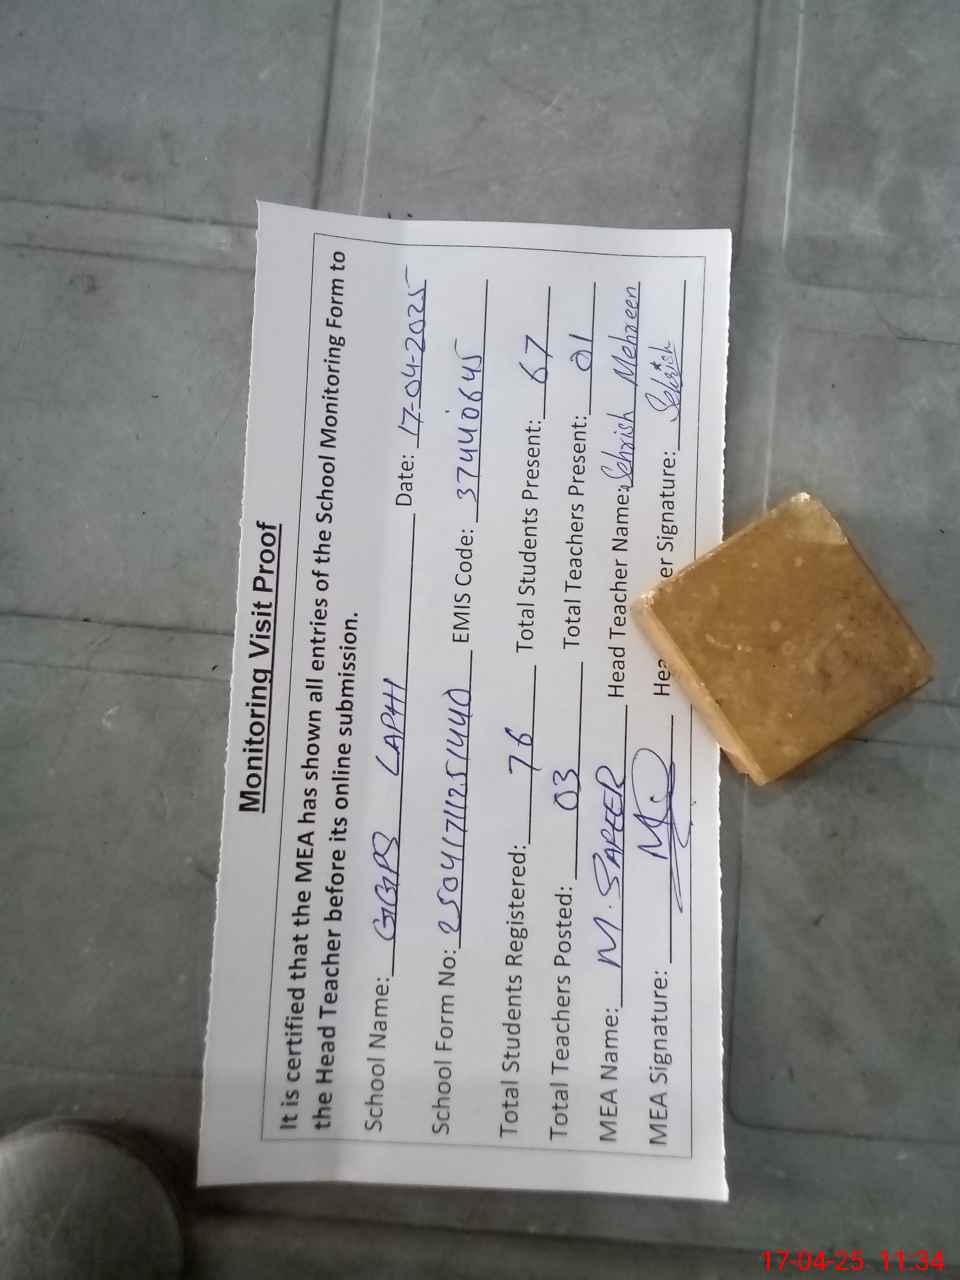 Monitoring Visit Proof
It is certified that the MEA has shown all entries of the School Monitoring Form to
the Head Teacher before its online submission.
School Name: GGPS LAPHI Date: 17-04-2025
School Form No: EMIS Code: 37440645
Total Students Registered: 76 Total Students Present: 67
Total Teachers Posted: 03 Total Teachers Present: 01
MEA Name: M. SAFEER Head Teacher Name: Sehrish Mehreen
MEA Signature: Hea er Signature: Sehrish
17-04-25 11:34